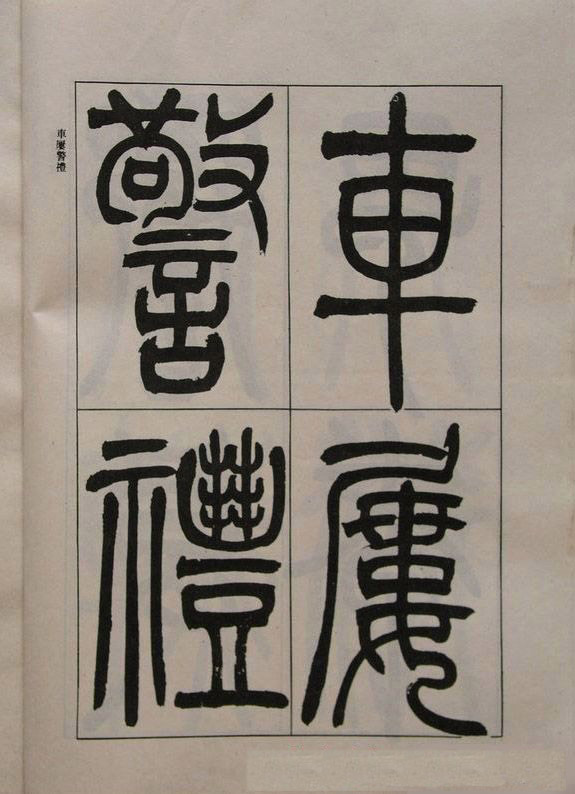 車屢
警禮
車屢警禮